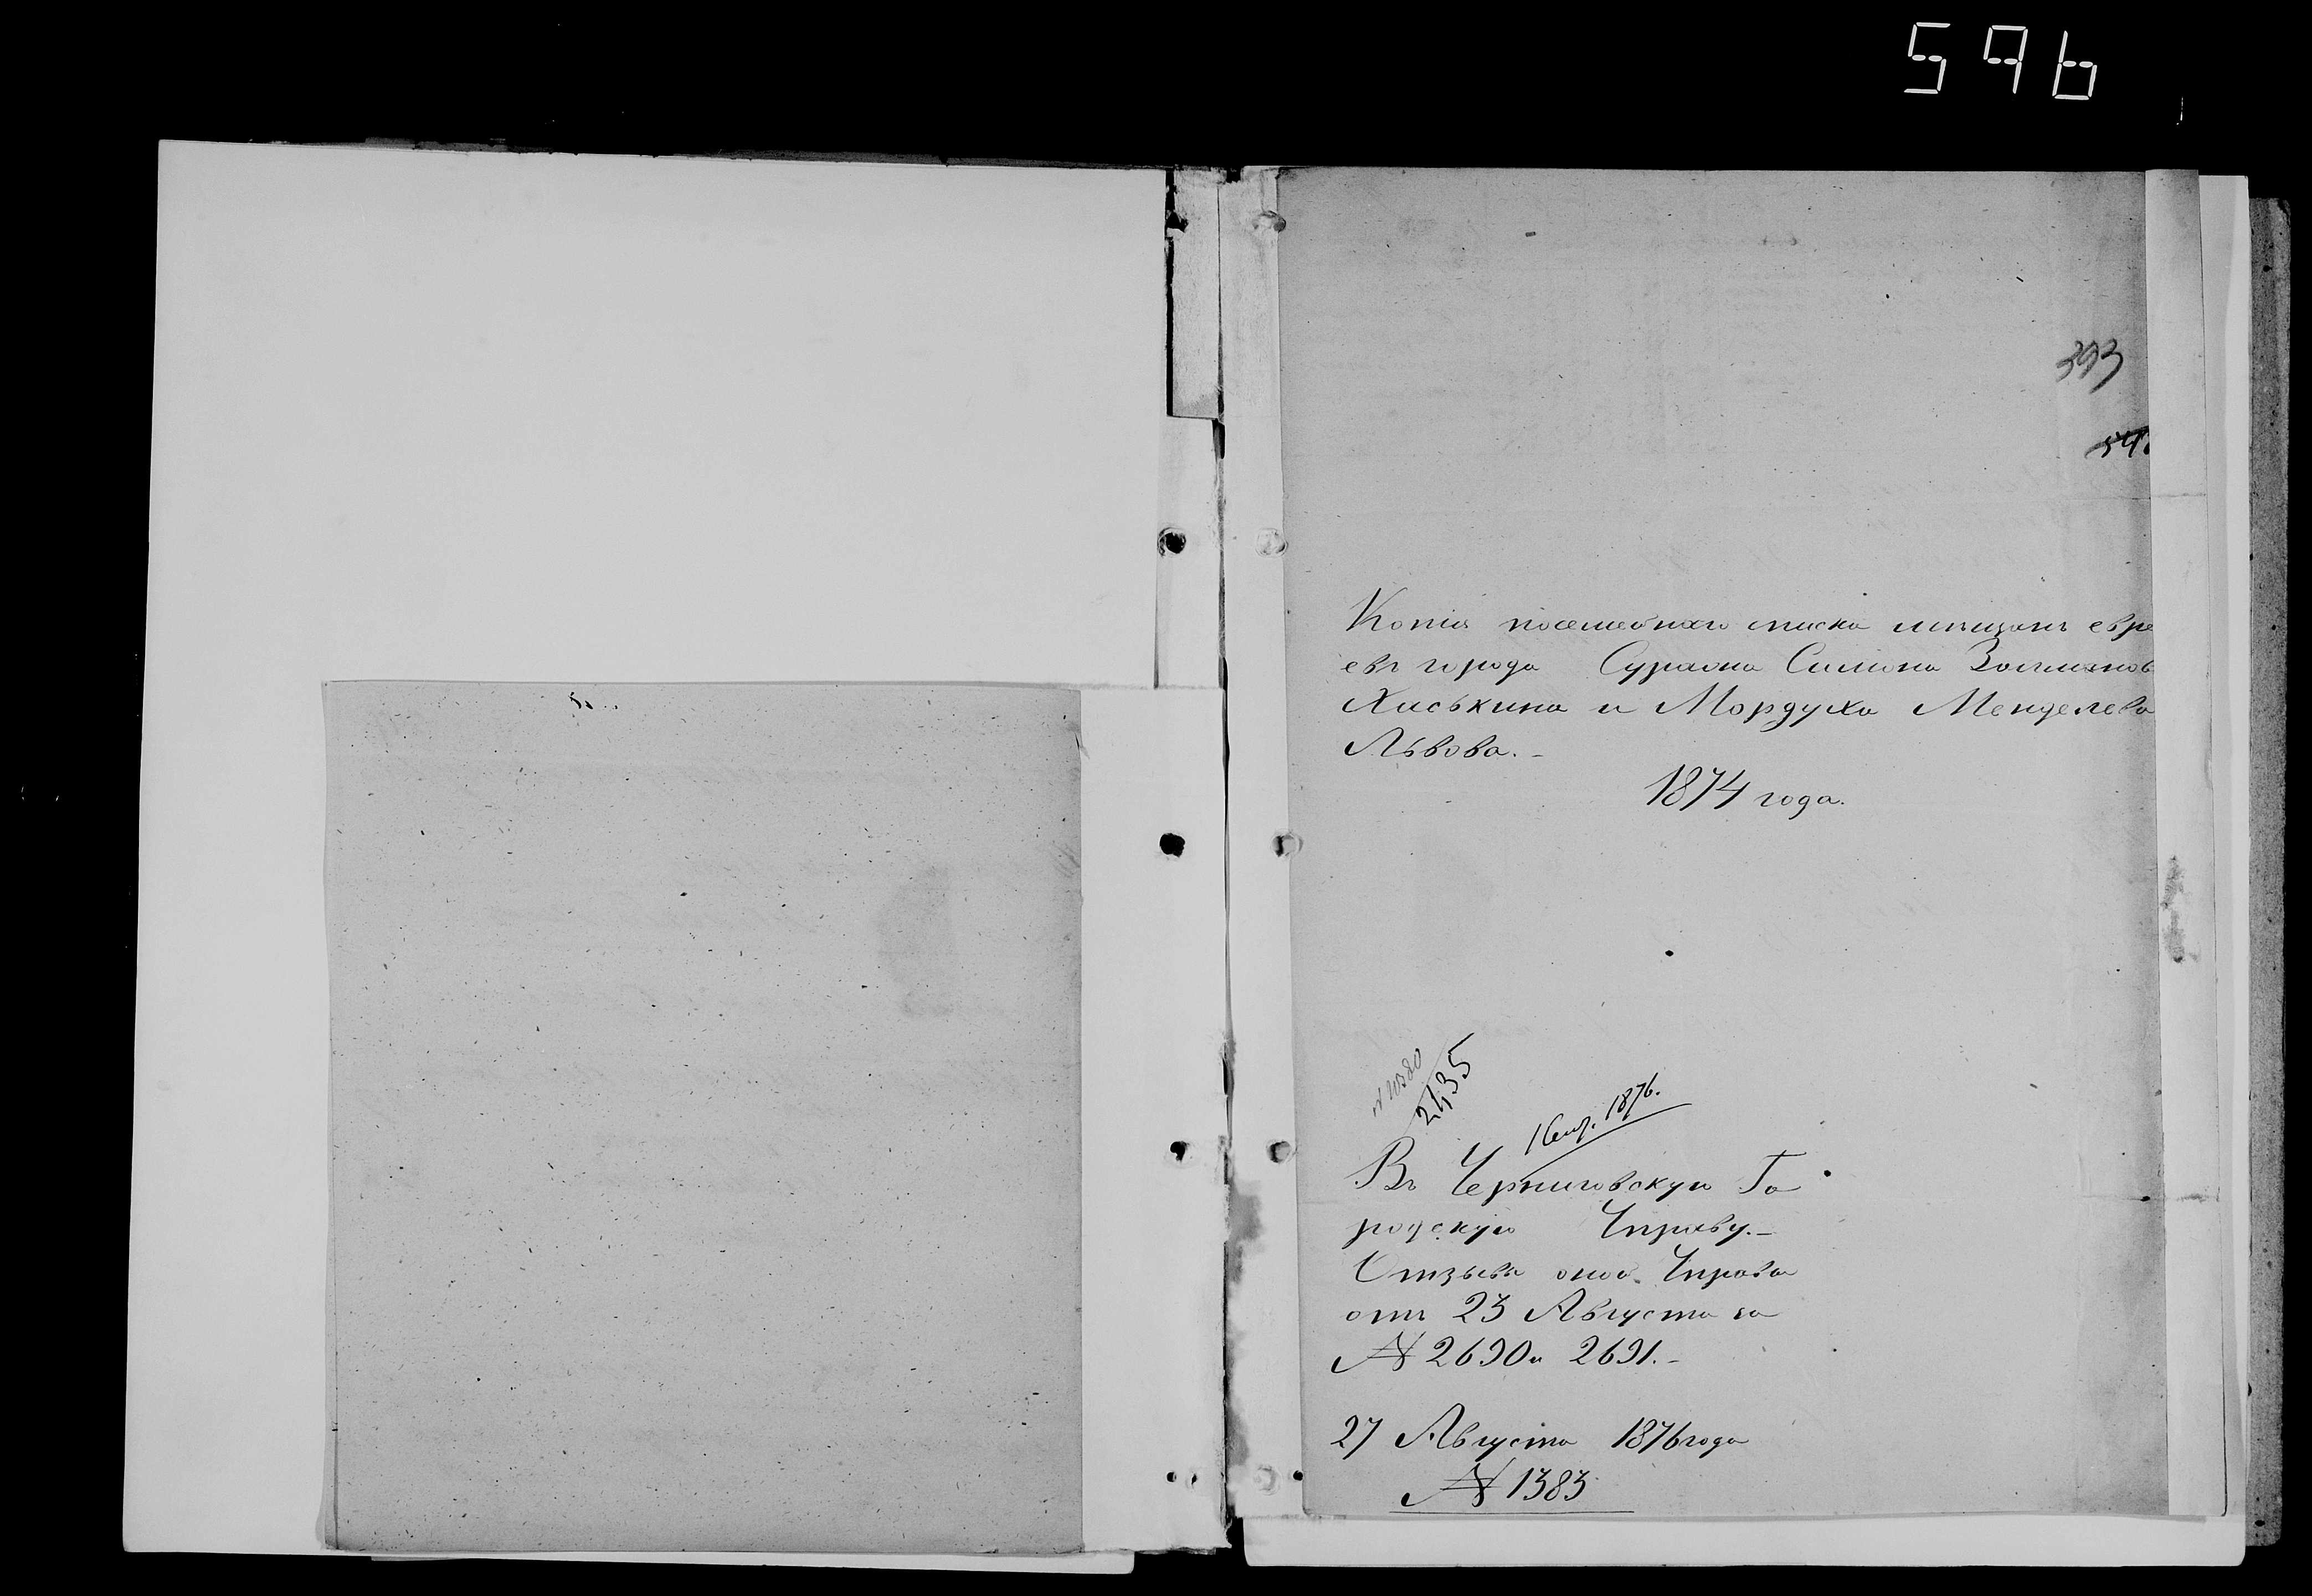 596
393
Копія посемейнаго списка мѣщанъ евре
евъ города Суража Симона Залманов
Хаськина и Мордуха Менделева
Львова.-
1874 года.
2435
1 Сент. 1876.
Въ Черниговскую Го
родскую Управу.-
Отзывъ оной Управы
отъ 23 Августа за
№ 2690 и 2691.-
27 Августа 1876 года
№ 1383